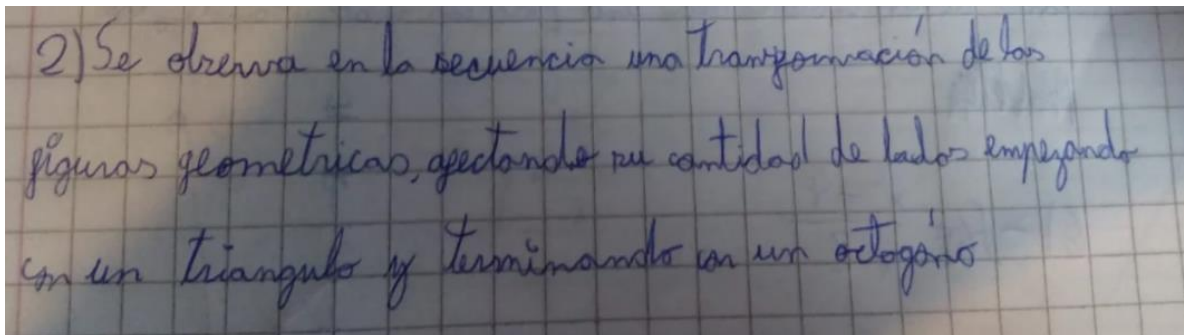 2) Se observa en la secuencia una transformación de las
figuras geometricas, afectando su cantidad de lados empezando
con un triangulo y terminando con un octogóno